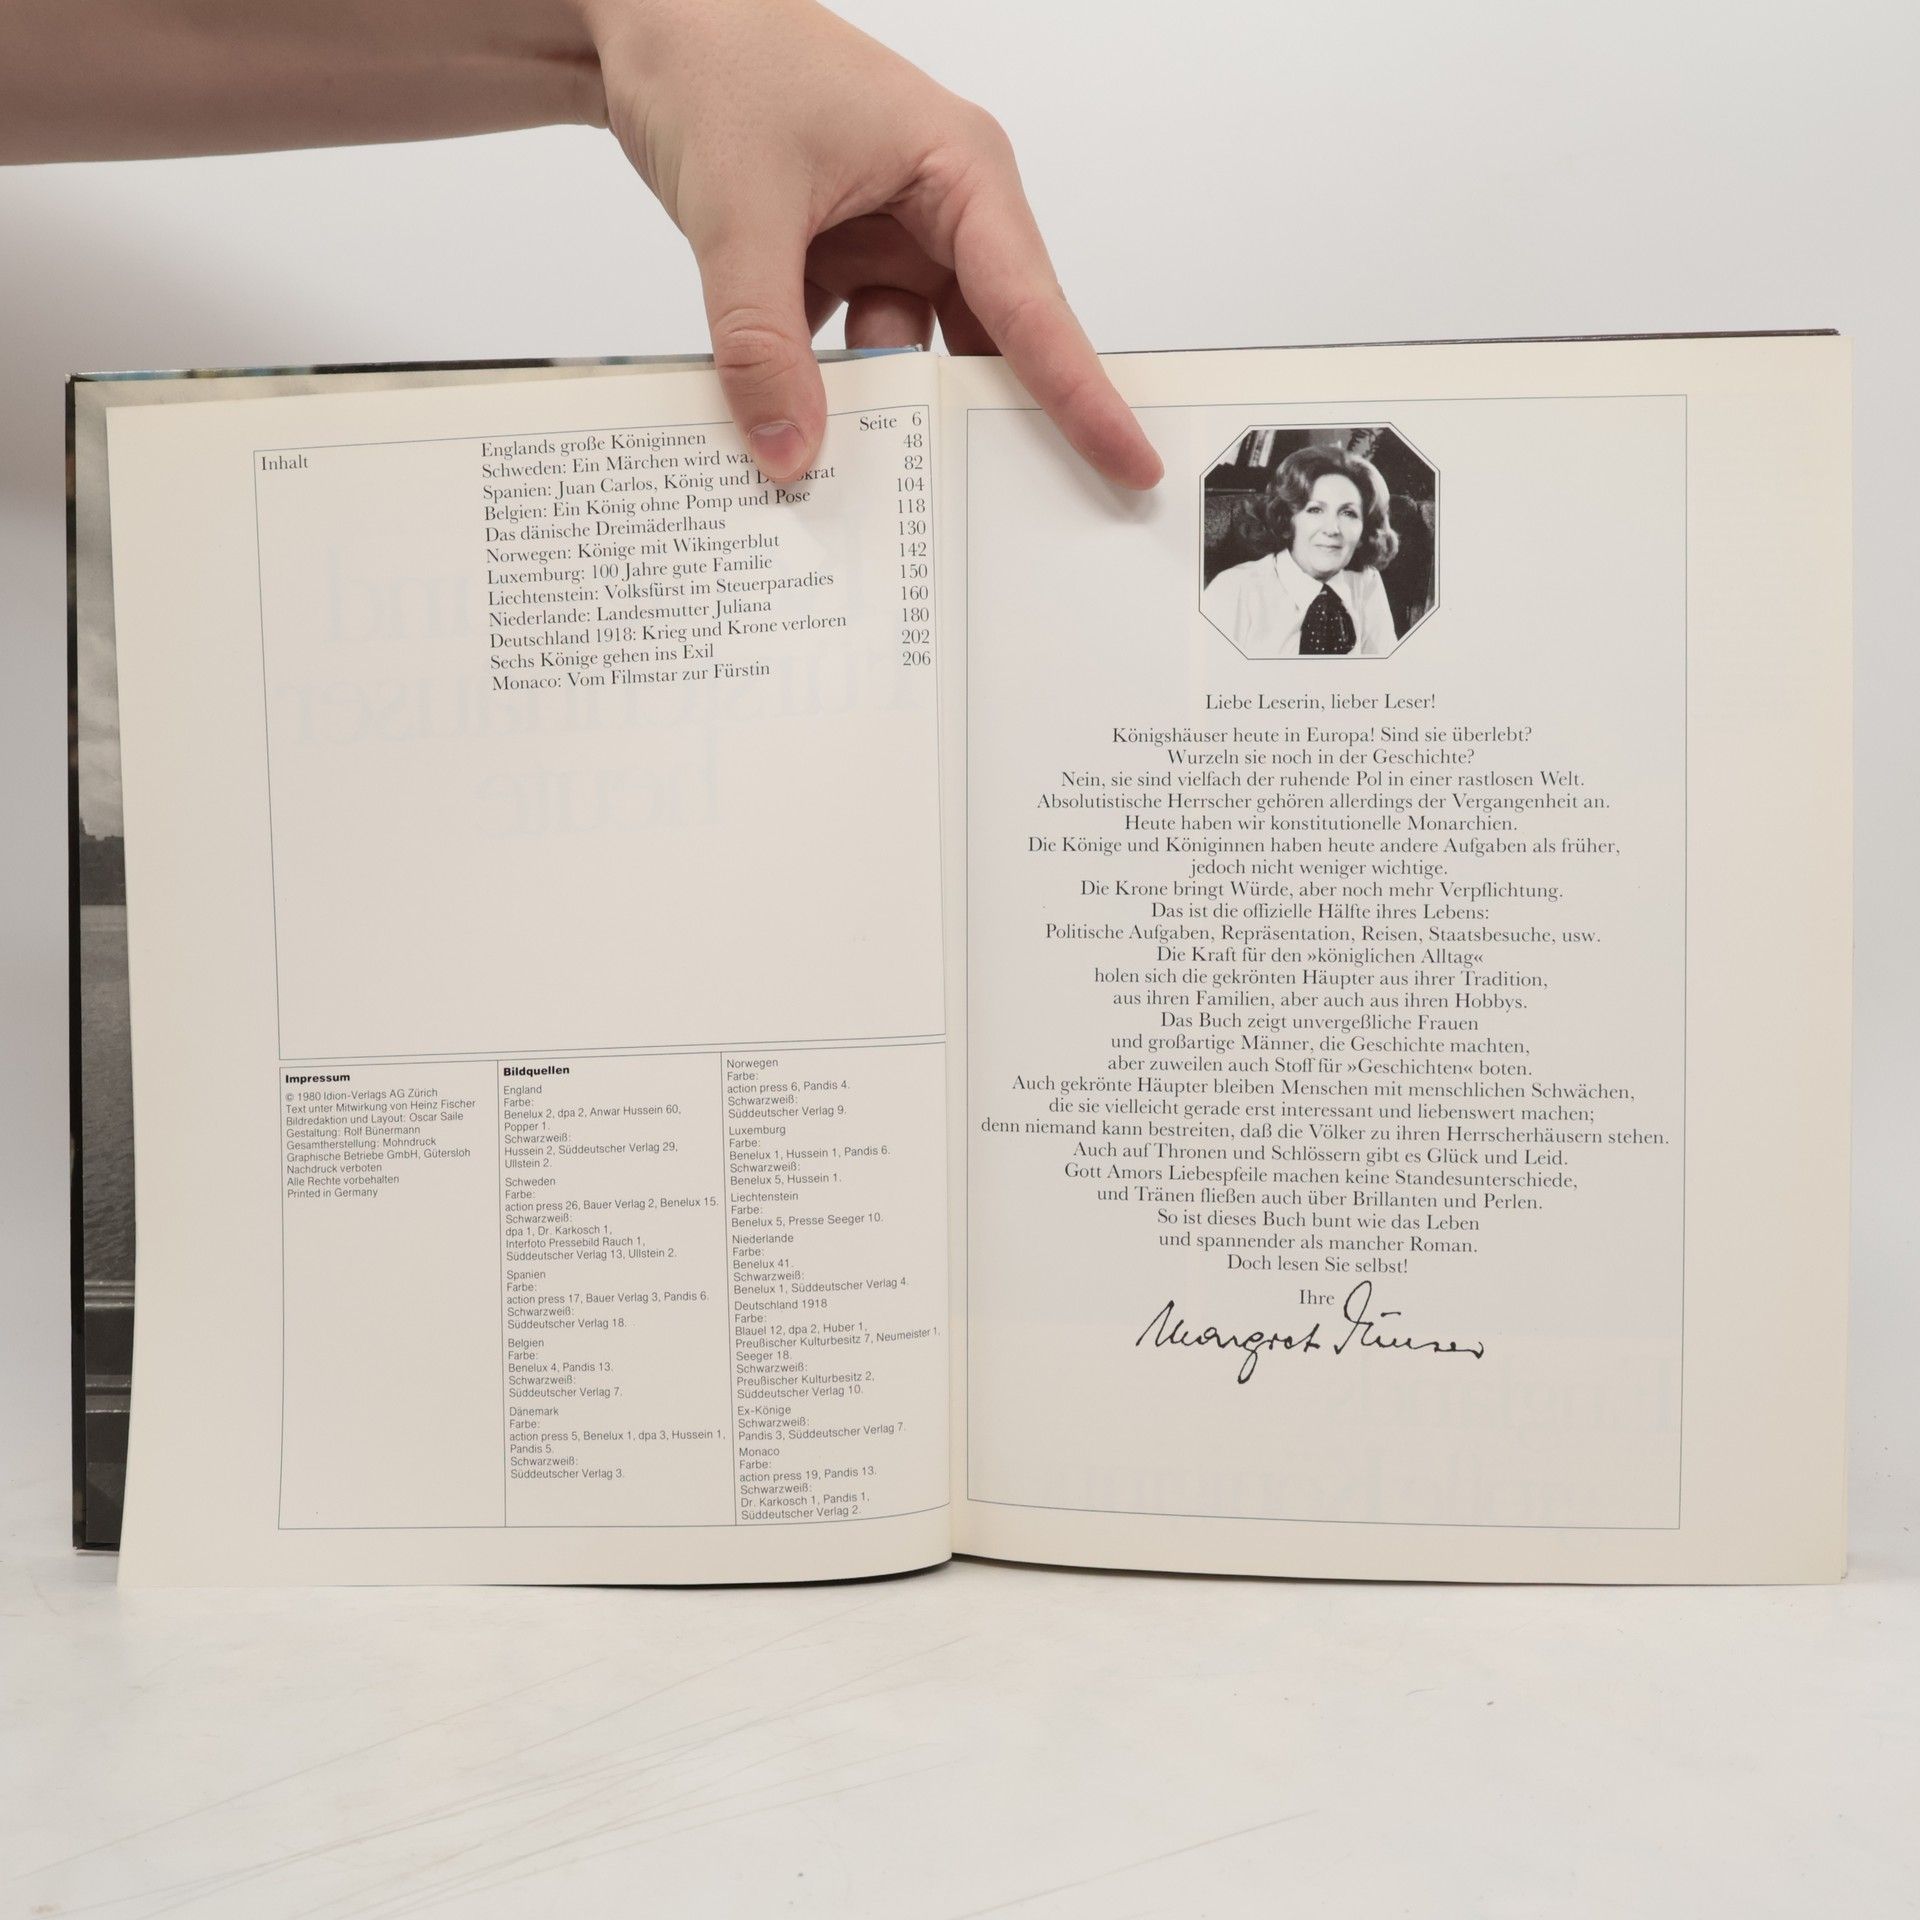 Inhalt
Englands große Königinnen Seite 6
Schweden: Ein Märchen wird 48
Spanien: Juan Carlos, König und 82
Belgien: Ein König ohne Pomp und Pose 104
Das dänische Dreimäderlhaus 118
Norwegen: Könige mit Wikingerblut 130
Luxemburg: 100 Jahre gute Familie 142
Liechtenstein: Volksfürst im Steuerparadies 150
Niederlande: Landesmutter Juliana 160
Deutschland 1918: Krieg und Krone verloren 180
Sechs Könige gehen ins Exil 202
Monaco: Vom Filmstar zur Fürstin 206
Impressum
© 1980 Idion-Verlags AG Zürich
Text unter Mitwirkung von Heinz Fischer
Bildredaktion und Layout: Oscar Saile
Gestaltung: Rolf Bünermann
Gesamtherstellung: Mohndruck
Graphische Betriebe GmbH, Gütersloh
Nachdruck verboten
Alle Rechte vorbehalten
Printed in Germany
Bildquellen
England
Farbe:
Benelux 2, dpa 2, Anwar Hussein 60,
Popper 1.
Schwarzweiß:
Hussein 2, Süddeutscher Verlag 29,
Ullstein 2.
Schweden
Farbe:
action press 26, Bauer Verlag 2, Benelux 15.
Schwarzweiß:
dpa 1, Dr. Karkosch 1,
Interfoto Pressebild Rauch 1,
Süddeutscher Verlag 13, Ullstein 2.
Spanien
Farbe:
action press 17, Bauer Verlag 3, Pandis 6.
Schwarzweiß:
Süddeutscher Verlag 18.
Belgien
Farbe:
Benelux 4, Pandis 13.
Schwarzweiß:
Süddeutscher Verlag 7.
Dänemark
Farbe:
action press 5, Benelux 1, dpa 3, Hussein 1,
Pandis 5.
Schwarzweiß:
Süddeutscher Verlag 3.
Norwegen
Farbe:
action press 6, Pandis 4.
Schwarzweiß:
Süddeutscher Verlag 9.
Luxemburg
Farbe:
Benelux 1, Hussein 1, Pandis 6.
Schwarzweiß:
Benelux 5, Hussein 1.
Liechtenstein
Farbe:
Benelux 5, Presse Seeger 10.
Niederlande
Farbe:
Benelux 41.
Schwarzweiß:
Benelux 1, Süddeutscher Verlag 4.
Deutschland 1918
Farbe:
Blauel 12, dpa 2, Huber 1,
Preußischer Kulturbesitz 7, Neumeister 1,
Seeger 18.
Schwarzweiß:
Preußischer Kulturbesitz 2,
Süddeutscher Verlag 10.
Ex-Könige
Schwarzweiß:
Pandis 3, Süddeutscher Verlag 7.
Monaco
Farbe:
action press 19, Pandis 13.
Schwarzweiß:
Dr. Karkosch 1, Pandis 1,
Süddeutscher Verlag 2.
Liebe Leserin, lieber Leser!
Königshäuser heute in Europa! Sind sie überlebt?
Wurzeln sie noch in der Geschichte?
Nein, sie sind vielfach der ruhende Pol in einer rastlosen Welt.
Absolutistische Herrscher gehören allerdings der Vergangenheit an.
Heute haben wir konstitutionelle Monarchien.
Die Könige und Königinnen haben heute andere Aufgaben als früher,
jedoch nicht weniger wichtige.
Die Krone bringt Würde, aber noch mehr Verpflichtung.
Das ist die offizielle Hälfte ihres Lebens:
Politische Aufgaben, Repräsentation, Reisen, Staatsbesuche, usw.
Die Kraft für den »königlichen Alltag«
holen sich die gekrönten Häupter aus ihrer Tradition,
aus ihren Familien, aber auch aus ihren Hobbys.
Das Buch zeigt unvergeßliche Frauen
und großartige Männer, die Geschichte machten,
aber zuweilen auch Stoff für »Geschichten« boten.
Auch gekrönte Häupter bleiben Menschen mit menschlichen Schwächen,
die sie vielleicht gerade erst interessant und liebenswert machen;
denn niemand kann bestreiten, daß die Völker zu ihren Herrscherhäusern stehen.
Auch auf Thronen und Schlössern gibt es Glück und Leid.
Gott Amors Liebespfeile machen keine Standesunterschiede,
und Tränen fließen auch über Brillanten und Perlen.
So ist dieses Buch bunt wie das Leben
und spannender als mancher Roman.
Doch lesen Sie selbst!
Ihre
Margret